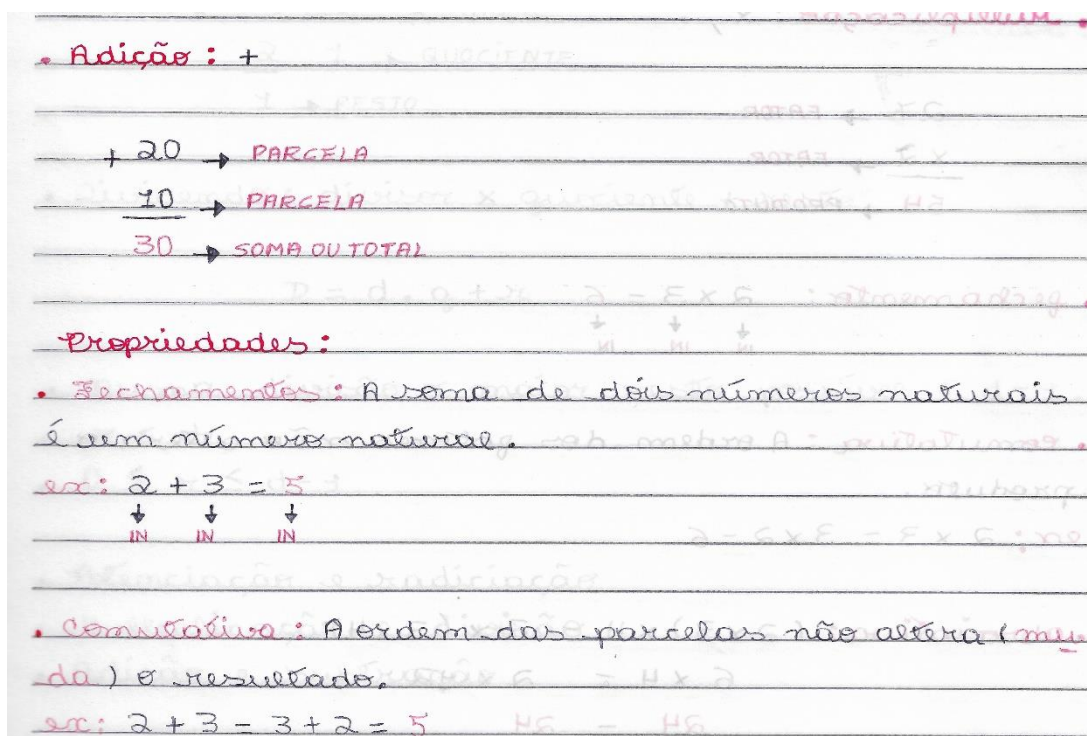 • Adição: +
+ 20 → PARCELA
10 → PARCELA
30 → SOMA OU TOTAL
Propriedades:
• Fechamentos: A soma de dois números naturais
é um número natural.
ex: 2 + 3 = 5
↓ ↓ ↓
IN IN IN
• Comutativa: A ordem das parcelas não altera (mu
da) o resultado.
ex: 2 + 3 = 3 + 2 = 5